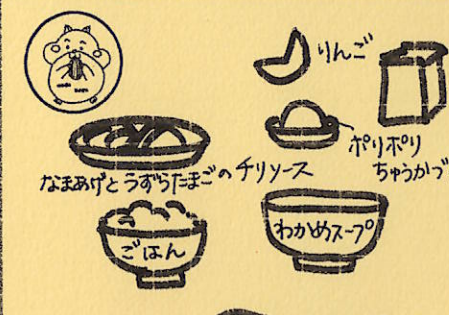 りんご
ポリポリ
ちゅうかづ
なまあげとうずらたまごのチリソース
ごはん
わかめスープ